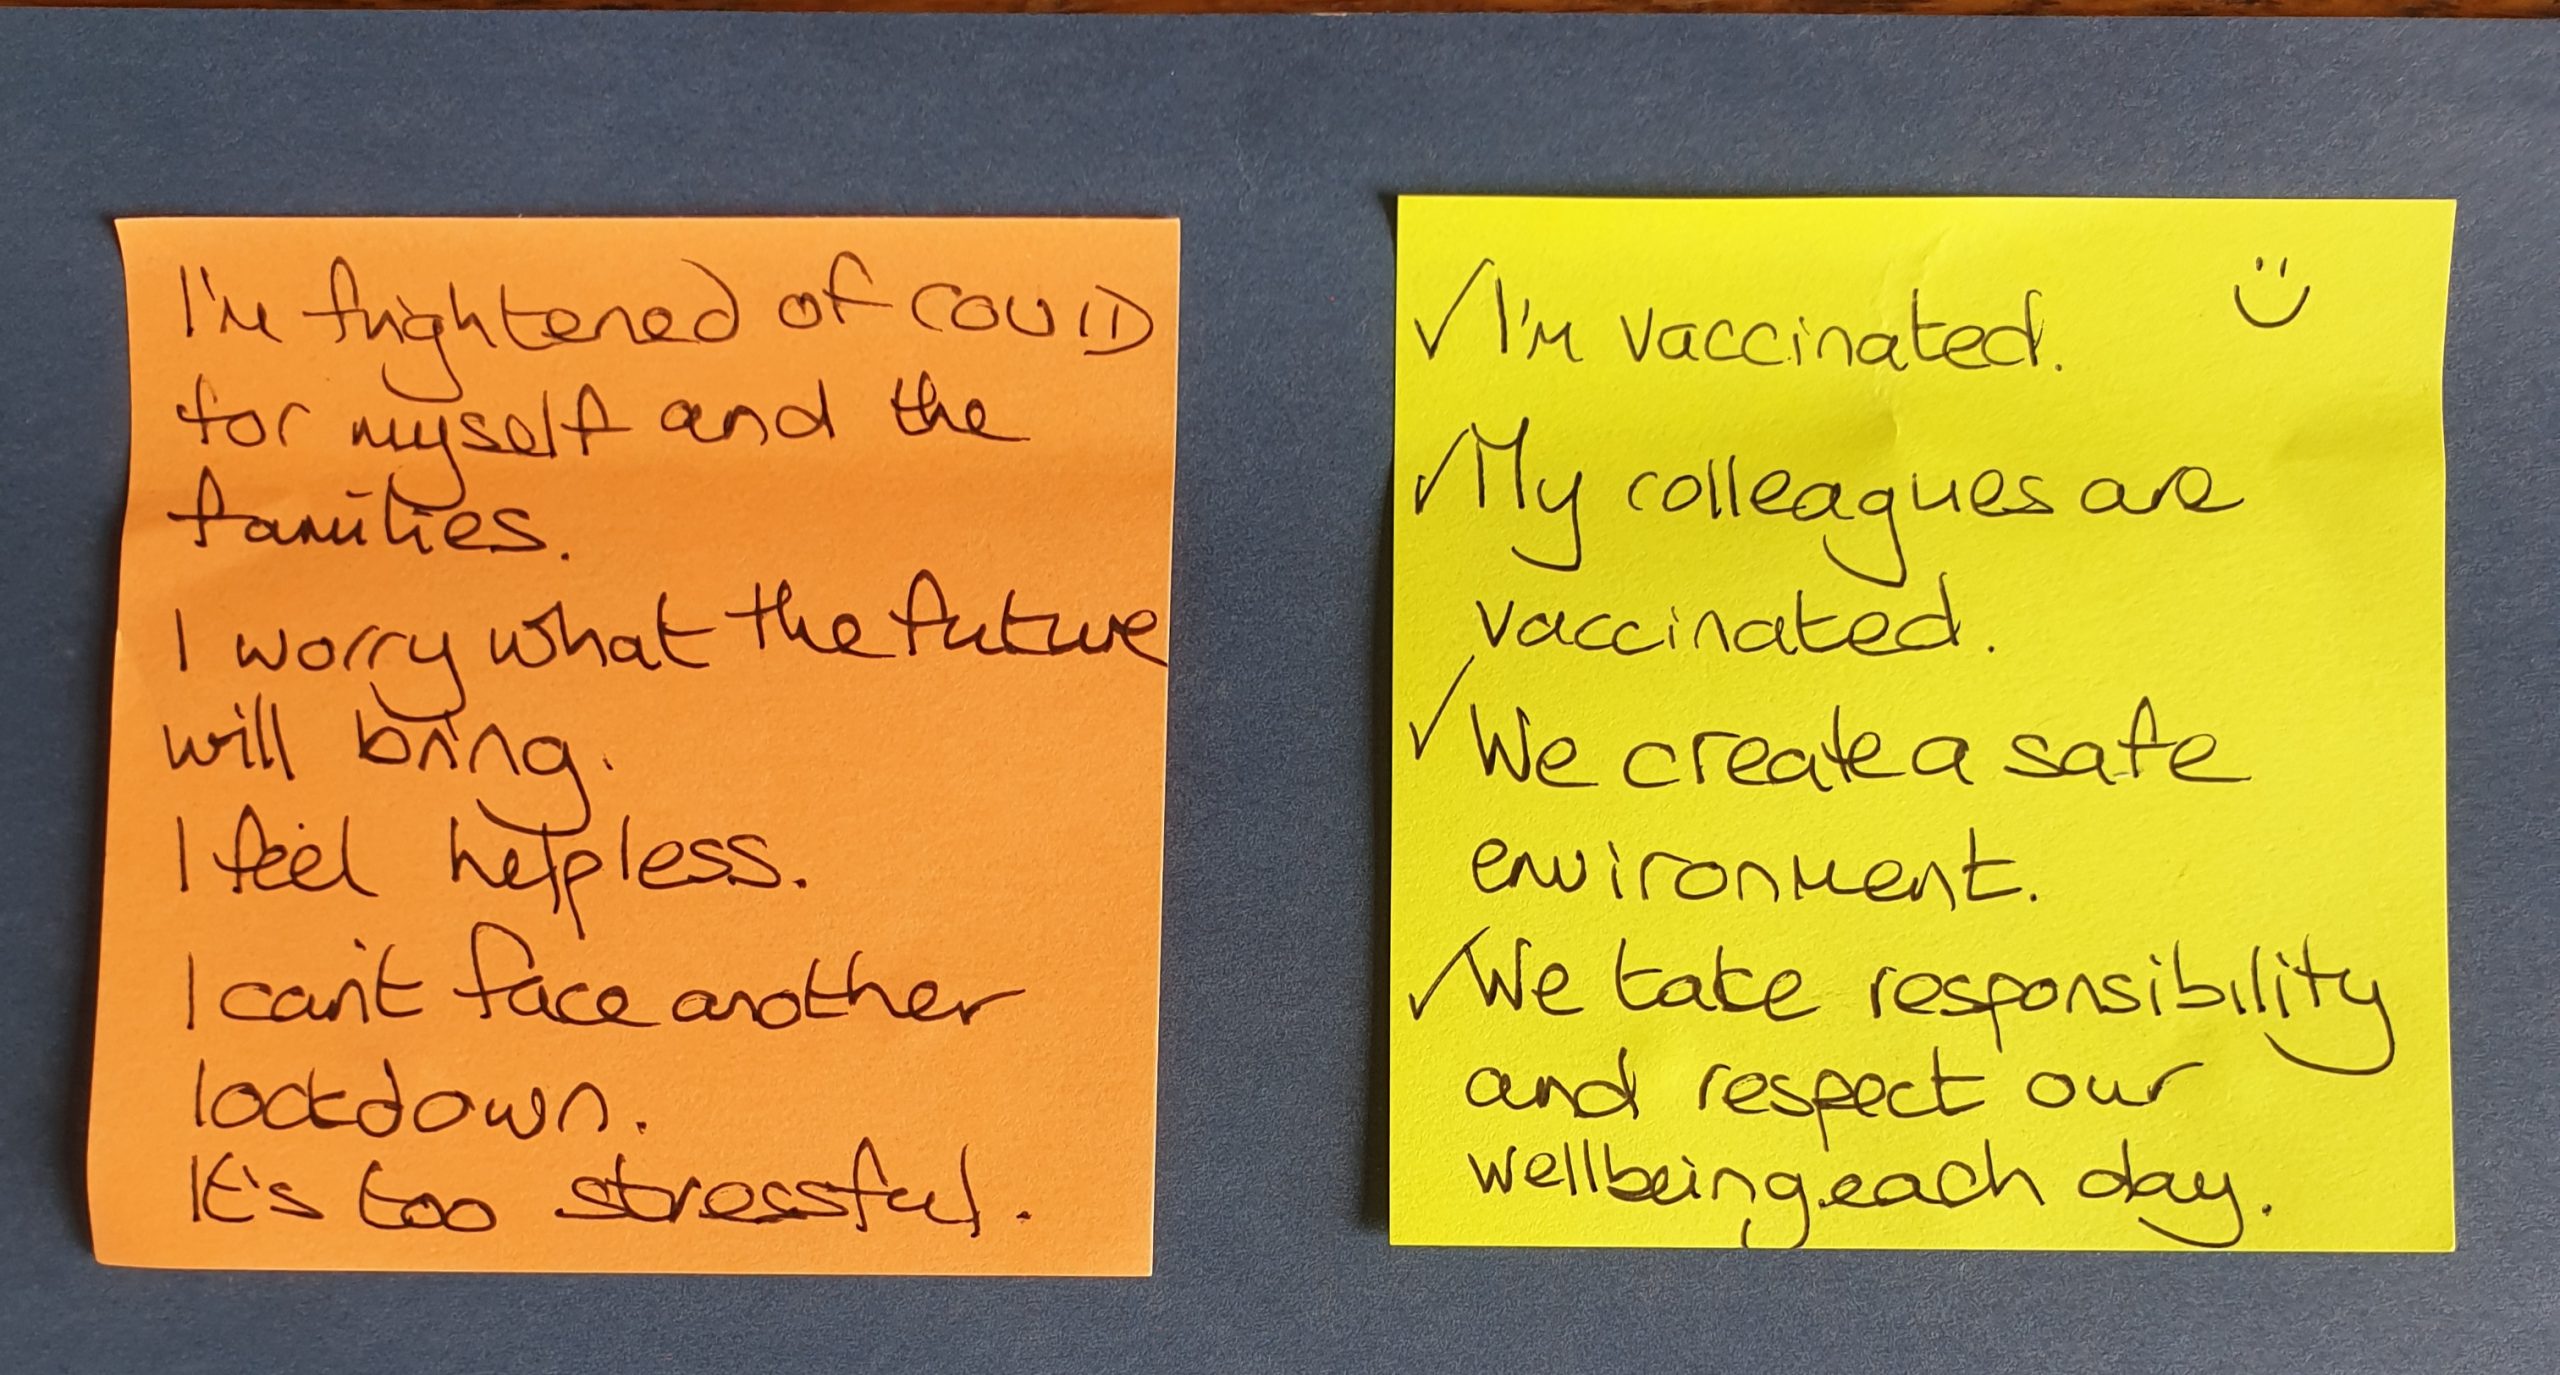 I'm frightened of COVID
for myself and the
families.
I worry what the future
will bring.
I feel helpless.
I can't face another
lockdown.
It's too stressful.
✓ I'm vaccinated.
✓ My colleagues are
vaccinated.
✓ We create a safe
environment.
✓ We take responsibility
and respect our
wellbeing each day.